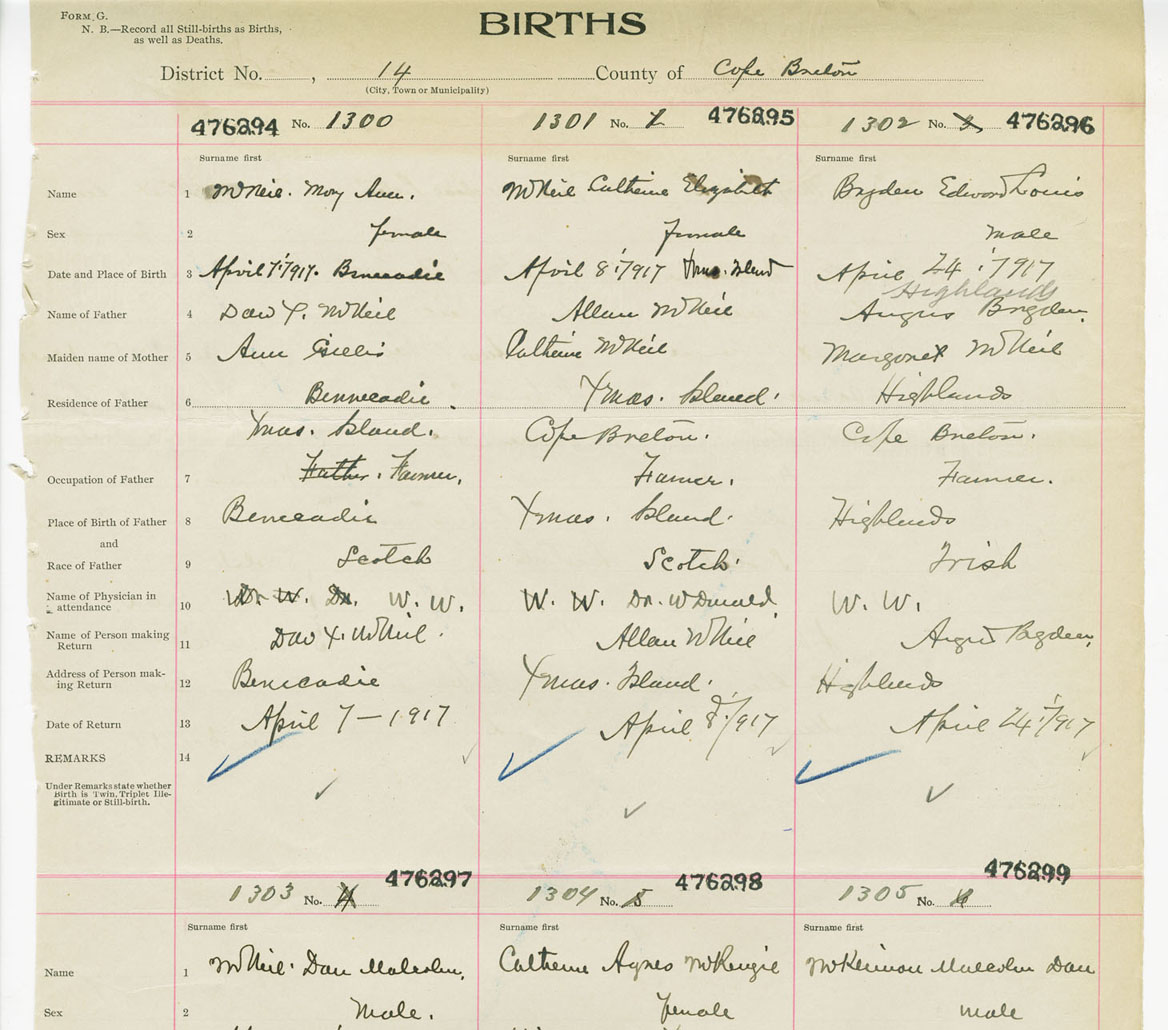 FORM G.
N. B.—Record all Still-births as Births,
as well as Deaths.
BIRTHS
District No. , 14 County of Cape Breton
(City, Town or Municipality)
476294 No. 1300 1301 No. 2 476295 1302 No. 3 476296
Surname first Surname first Surname first
Name 1 McNeil. Mary Ann. McNeil Catherine Elizabeth Bogden Edward Louis
Sex 2 female female male
Date and Place of Birth 3 April 7:1917. Benecadie April 8:1917 Xmas. Island April 24:1917
Highlands
Name of Father 4 Dan X. McNeil Allan McNeil Angus Bogden.
Maiden name of Mother 5 Ann Gillis Catherine McNeil Margaret McNeil
Residence of Father 6 Bennecadie. Xmas. Island. Highlands
Xmas. Island. Cape Breton. Cape Breton.
Occupation of Father 7 Father. Farmer. Farmer. Farmer.
Place of Birth of Father 8 Benecadie Xmas. Island. Highlands
and
Race of Father 9 Scotch Scotch. Irish
Name of Physician in
attendance 10 Dr. W. Dr. W. W. W. W. Dr. McDonald W. W.
Name of Person making
Return 11 Dan X. McNeil. Allan McNeil Angus Bogden.
Address of Person mak-
ing Return 12 Benecadie Xmas. Island. Highlands
Date of Return 13 April 7-1917 April 8:/1917 April 24:/1917
REMARKS 14
Under Remarks state whether
Birth is Twin, Triplet Ille-
gitimate or Still-birth.
1303 No. 4 476297 1304 No. 5 476298 1305 No. 6 476299
Surname first Surname first Surname first
Name 1 McNeil. Dan Malcolm. Catherine Agnes McKenzie McKinnon Malcolm Dan
Sex 2 Male. female male